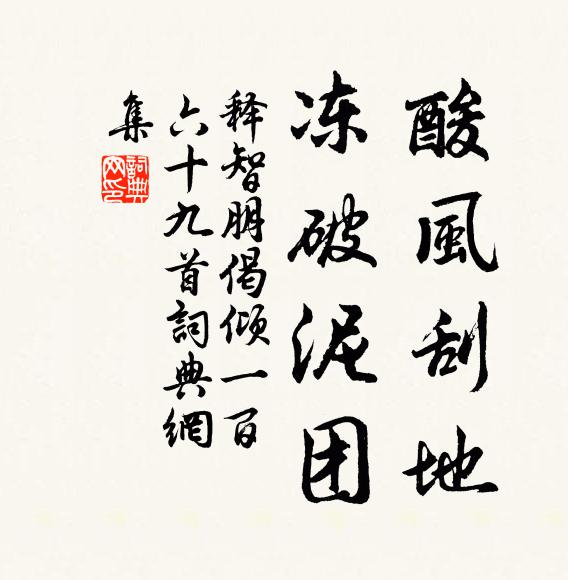 酸風刮地
冻破泥团
释智朋偈倾一百
六十九首詞典網
集
詞典
网印